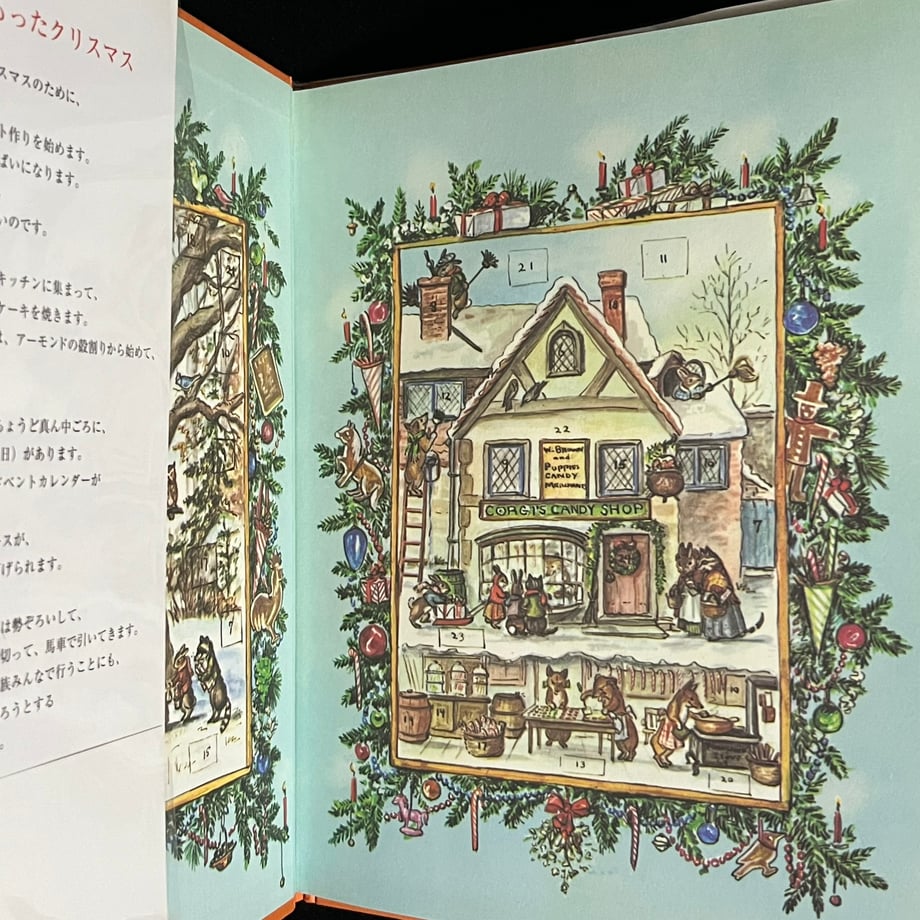 ったクリスマス
スマスのために、
ト作りを始めます。
ぱいになります。
いのです。
キッチンに集まって、
ケーキを焼きます。
は、アーモンドの殻割りから始めて、
ちょうど真ん中ごろに、
日）があります。
ドベントカレンダーが
スが、
げられます。
は勢ぞろいして、
切って、馬車で引いてきます。
族みんなで行うことにも、
ろうとする
。
7
15
21
11
12
22
9
W. Brown
and
Puppies
CANDY
Merchant
15
16
CORGI'S CANDY SHOP
7
23
14
17
13
20